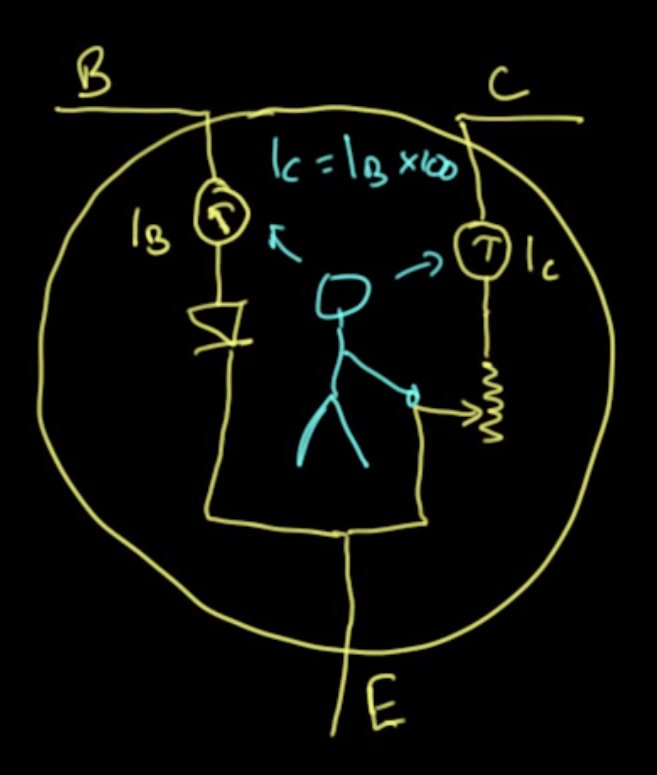 B
C
I_C = I_B ×100
I_B
I_C
E